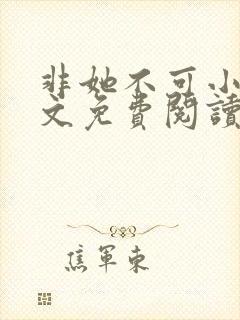 非她不可小
文免費閱讀
焦軍東